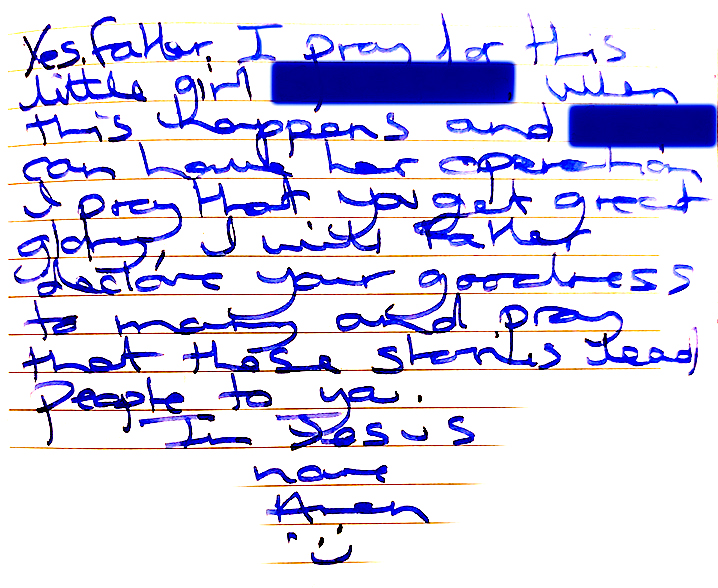 Yes, Father. I pray for this
little girl when
this happens and
can have her operation
I pray that you get great
glory, I will Father
declare your goodness
to many and pray
that these stories lead
People to ya.
In Jesus
name
Amen